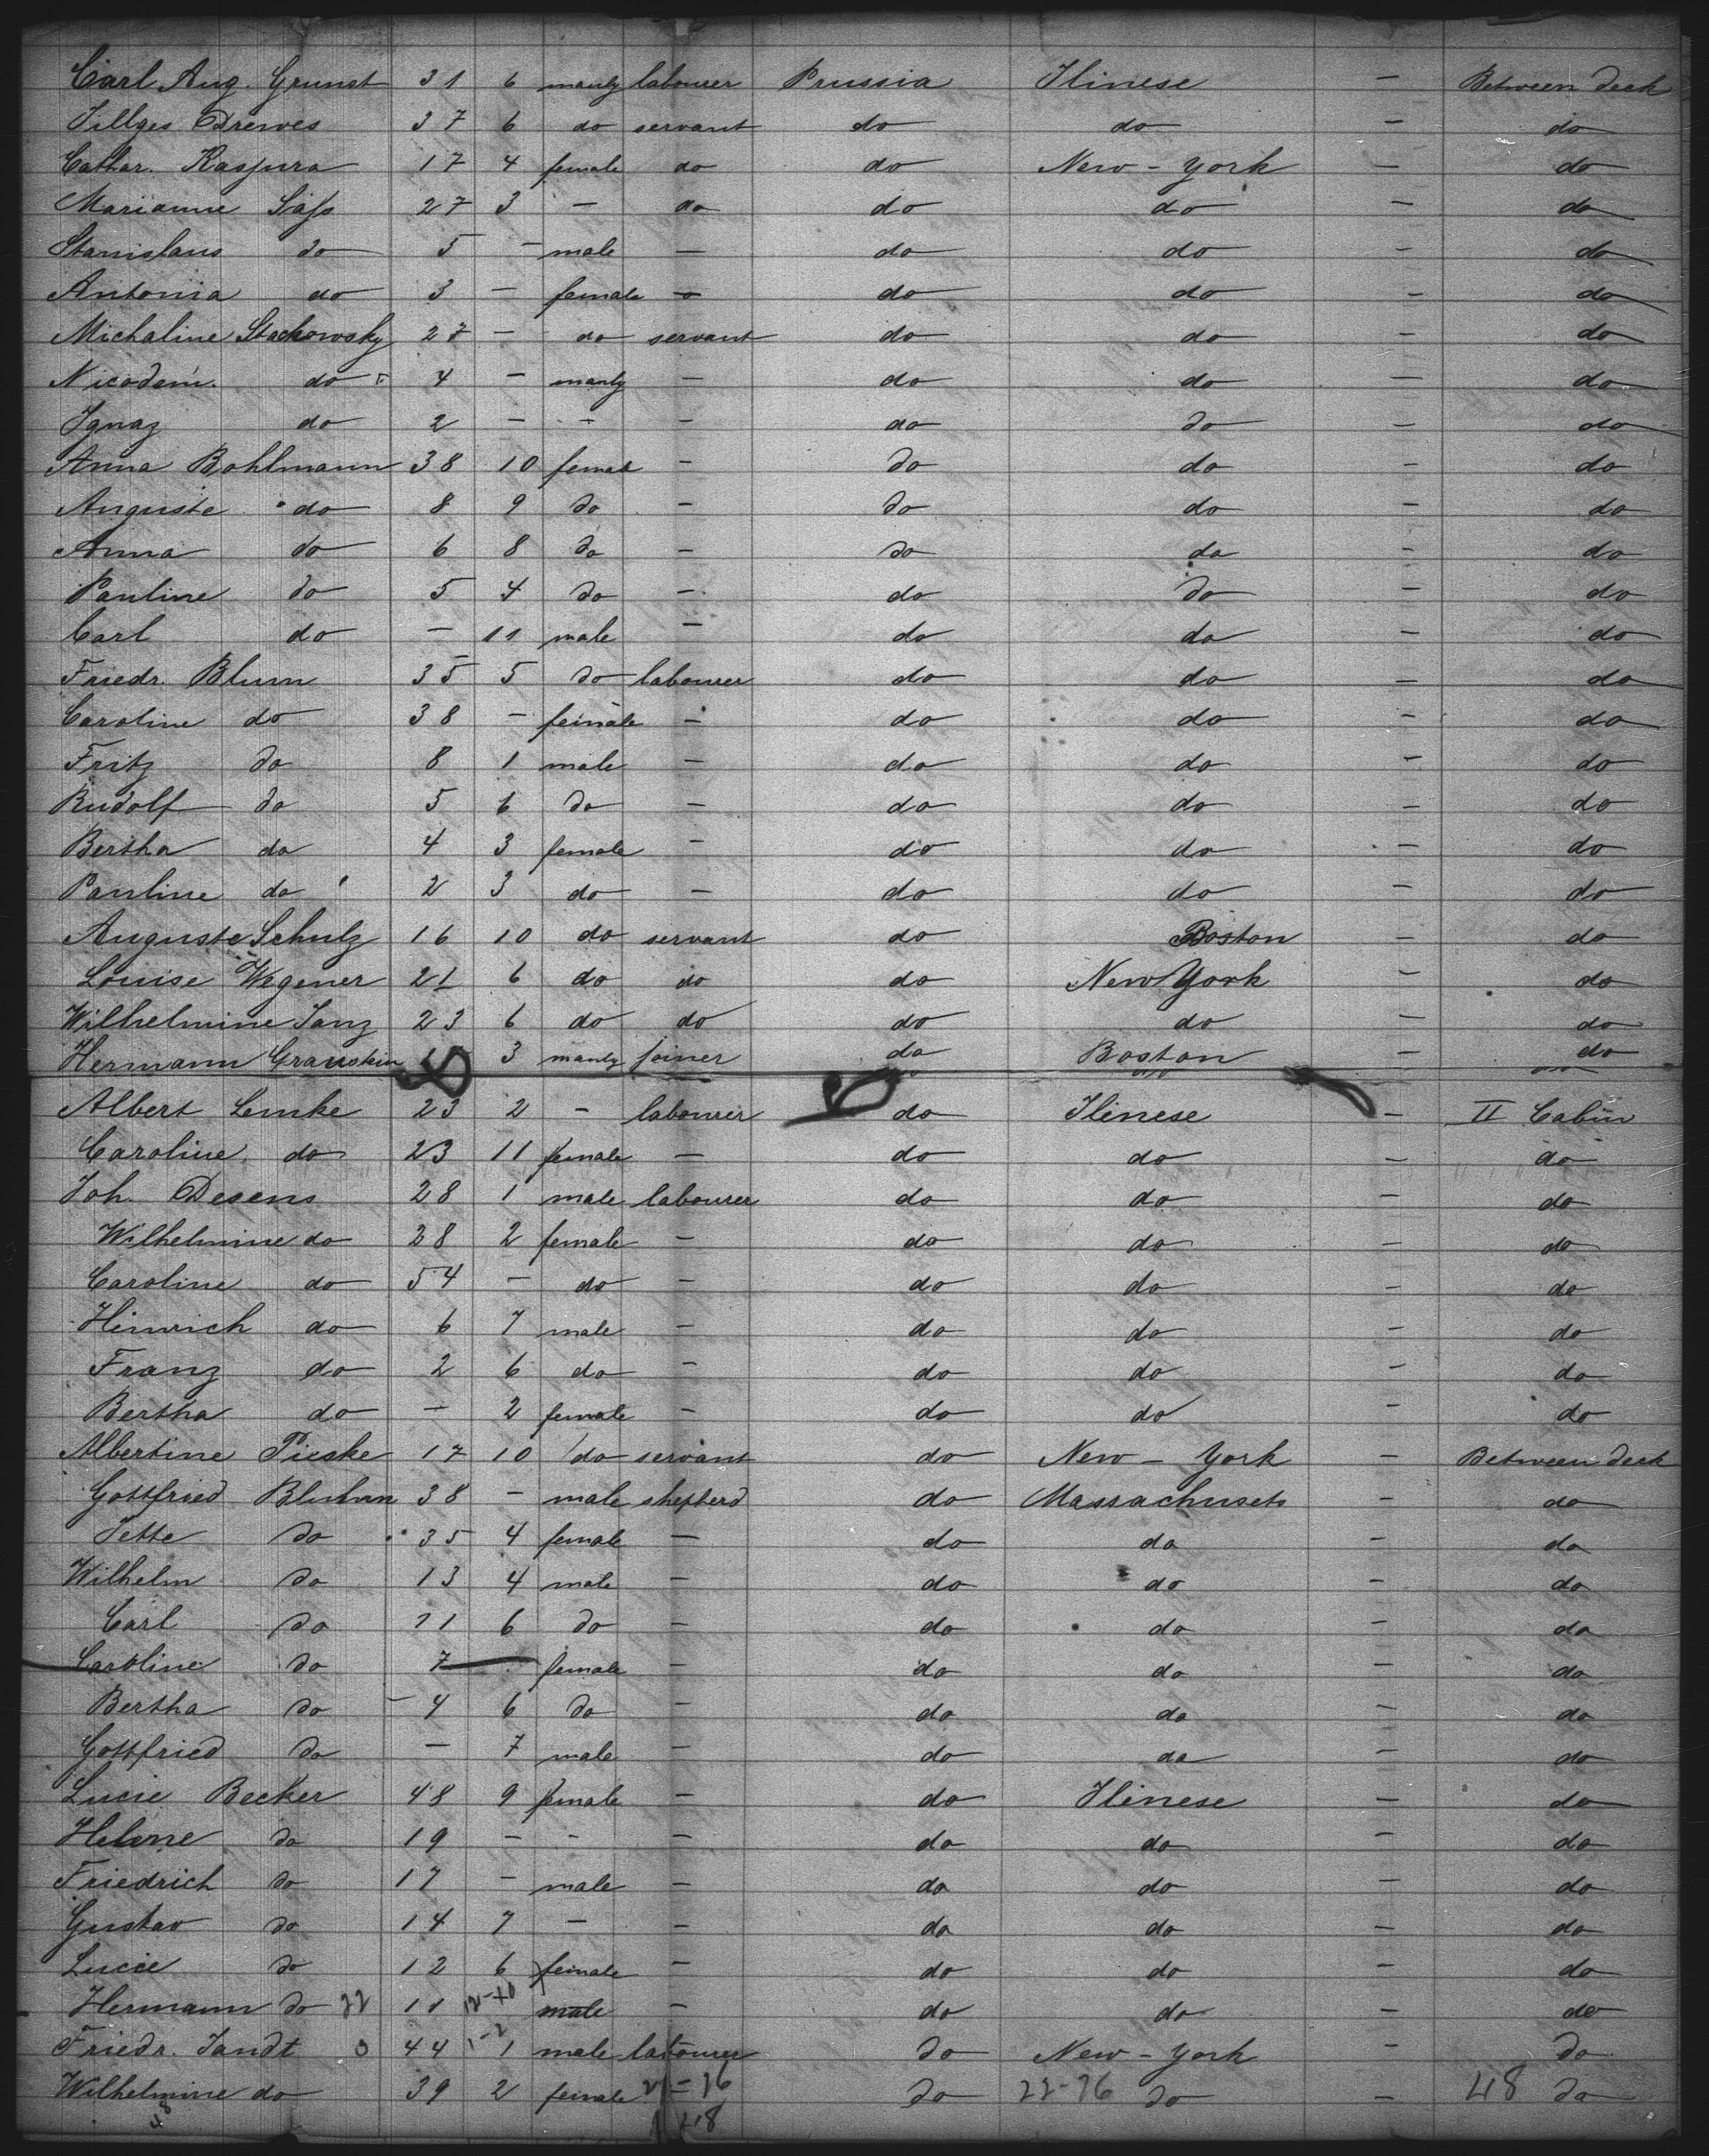 Carl Aug. Grunst 31 6 manly labourer Prussia Ilinese — Between deck
Tillges Drewes 37 6 do servant do do — do
Cathar. Kaspura 17 4 female do do New-York — do
Marianne Sass 27 3 — do do do — do
Stanislaus do 5 — male — do do — do
Antonia do 3 — female — do do — do
Michaline Stachowsky 27 — do servant do do — do
Nicodem. do 4 — manly — do do — do
Ignaz do 2 — — — do do — do
Anna Bohlmann 38 10 female — do do — do
Auguste do 8 9 do — do do — do
Anna do 6 8 do — do do — do
Pauline do 5 4 do — do do — do
Carl do — 11 male — do do — do
Friedr. Blum 35 5 do labourer do do — do
Caroline do 38 — female — do do — do
Fritz do 8 1 male — do do — do
Rudolf do 5 6 do — do do — do
Bertha do 4 3 female — do do — do
Pauline do 2 3 do — do do — do
Auguste Schulz 16 10 do servant do Boston — do
Louise Wegener 21 6 do do do New York — do
Wilhelmine Janz 23 6 do do do do — do
Hermann Graustein 3 manly joiner do Boston — do
Albert Lemke 23 2 — labourer do Ilinese — II Cabin
Caroline do 23 11 female — do do — do
Joh. Desens 28 1 male labourer do do — do
Wilhelmine do 28 2 female — do do — do
Caroline do 54 — do — do do — do
Heinrich do 6 7 male — do do — do
Franz do 2 6 do — do do — do
Bertha do — 2 female — do do — do
Albertine Pieske 17 10 do servant do New-York — Between deck
Gottfried Bluhm 38 — male shepherd do Massachusets — do
Jette do 35 4 female — do do — do
Wilhelm do 13 4 male — do do — do
Carl do 11 6 do — do do — do
Caroline do 7 — female — do do — do
Bertha do 4 6 do — do do — do
Gottfried do — 7 male — do do — do
Lucie Becker 48 9 female — do Ilinese — do
Helene do 19 — — — do do — do
Friedrich do 17 — male — do do — do
Gustav do 14 7 — — do do — do
Lucie do 12 6 female — do do — do
Hermann do 22 11 12-10 male — do do — do
Friedr. Jandt 44 1-2 1 male labourer do New-York — do
Wilhelmine do 39 2 female 21-26 do 22-26 do — 48 do
48 48